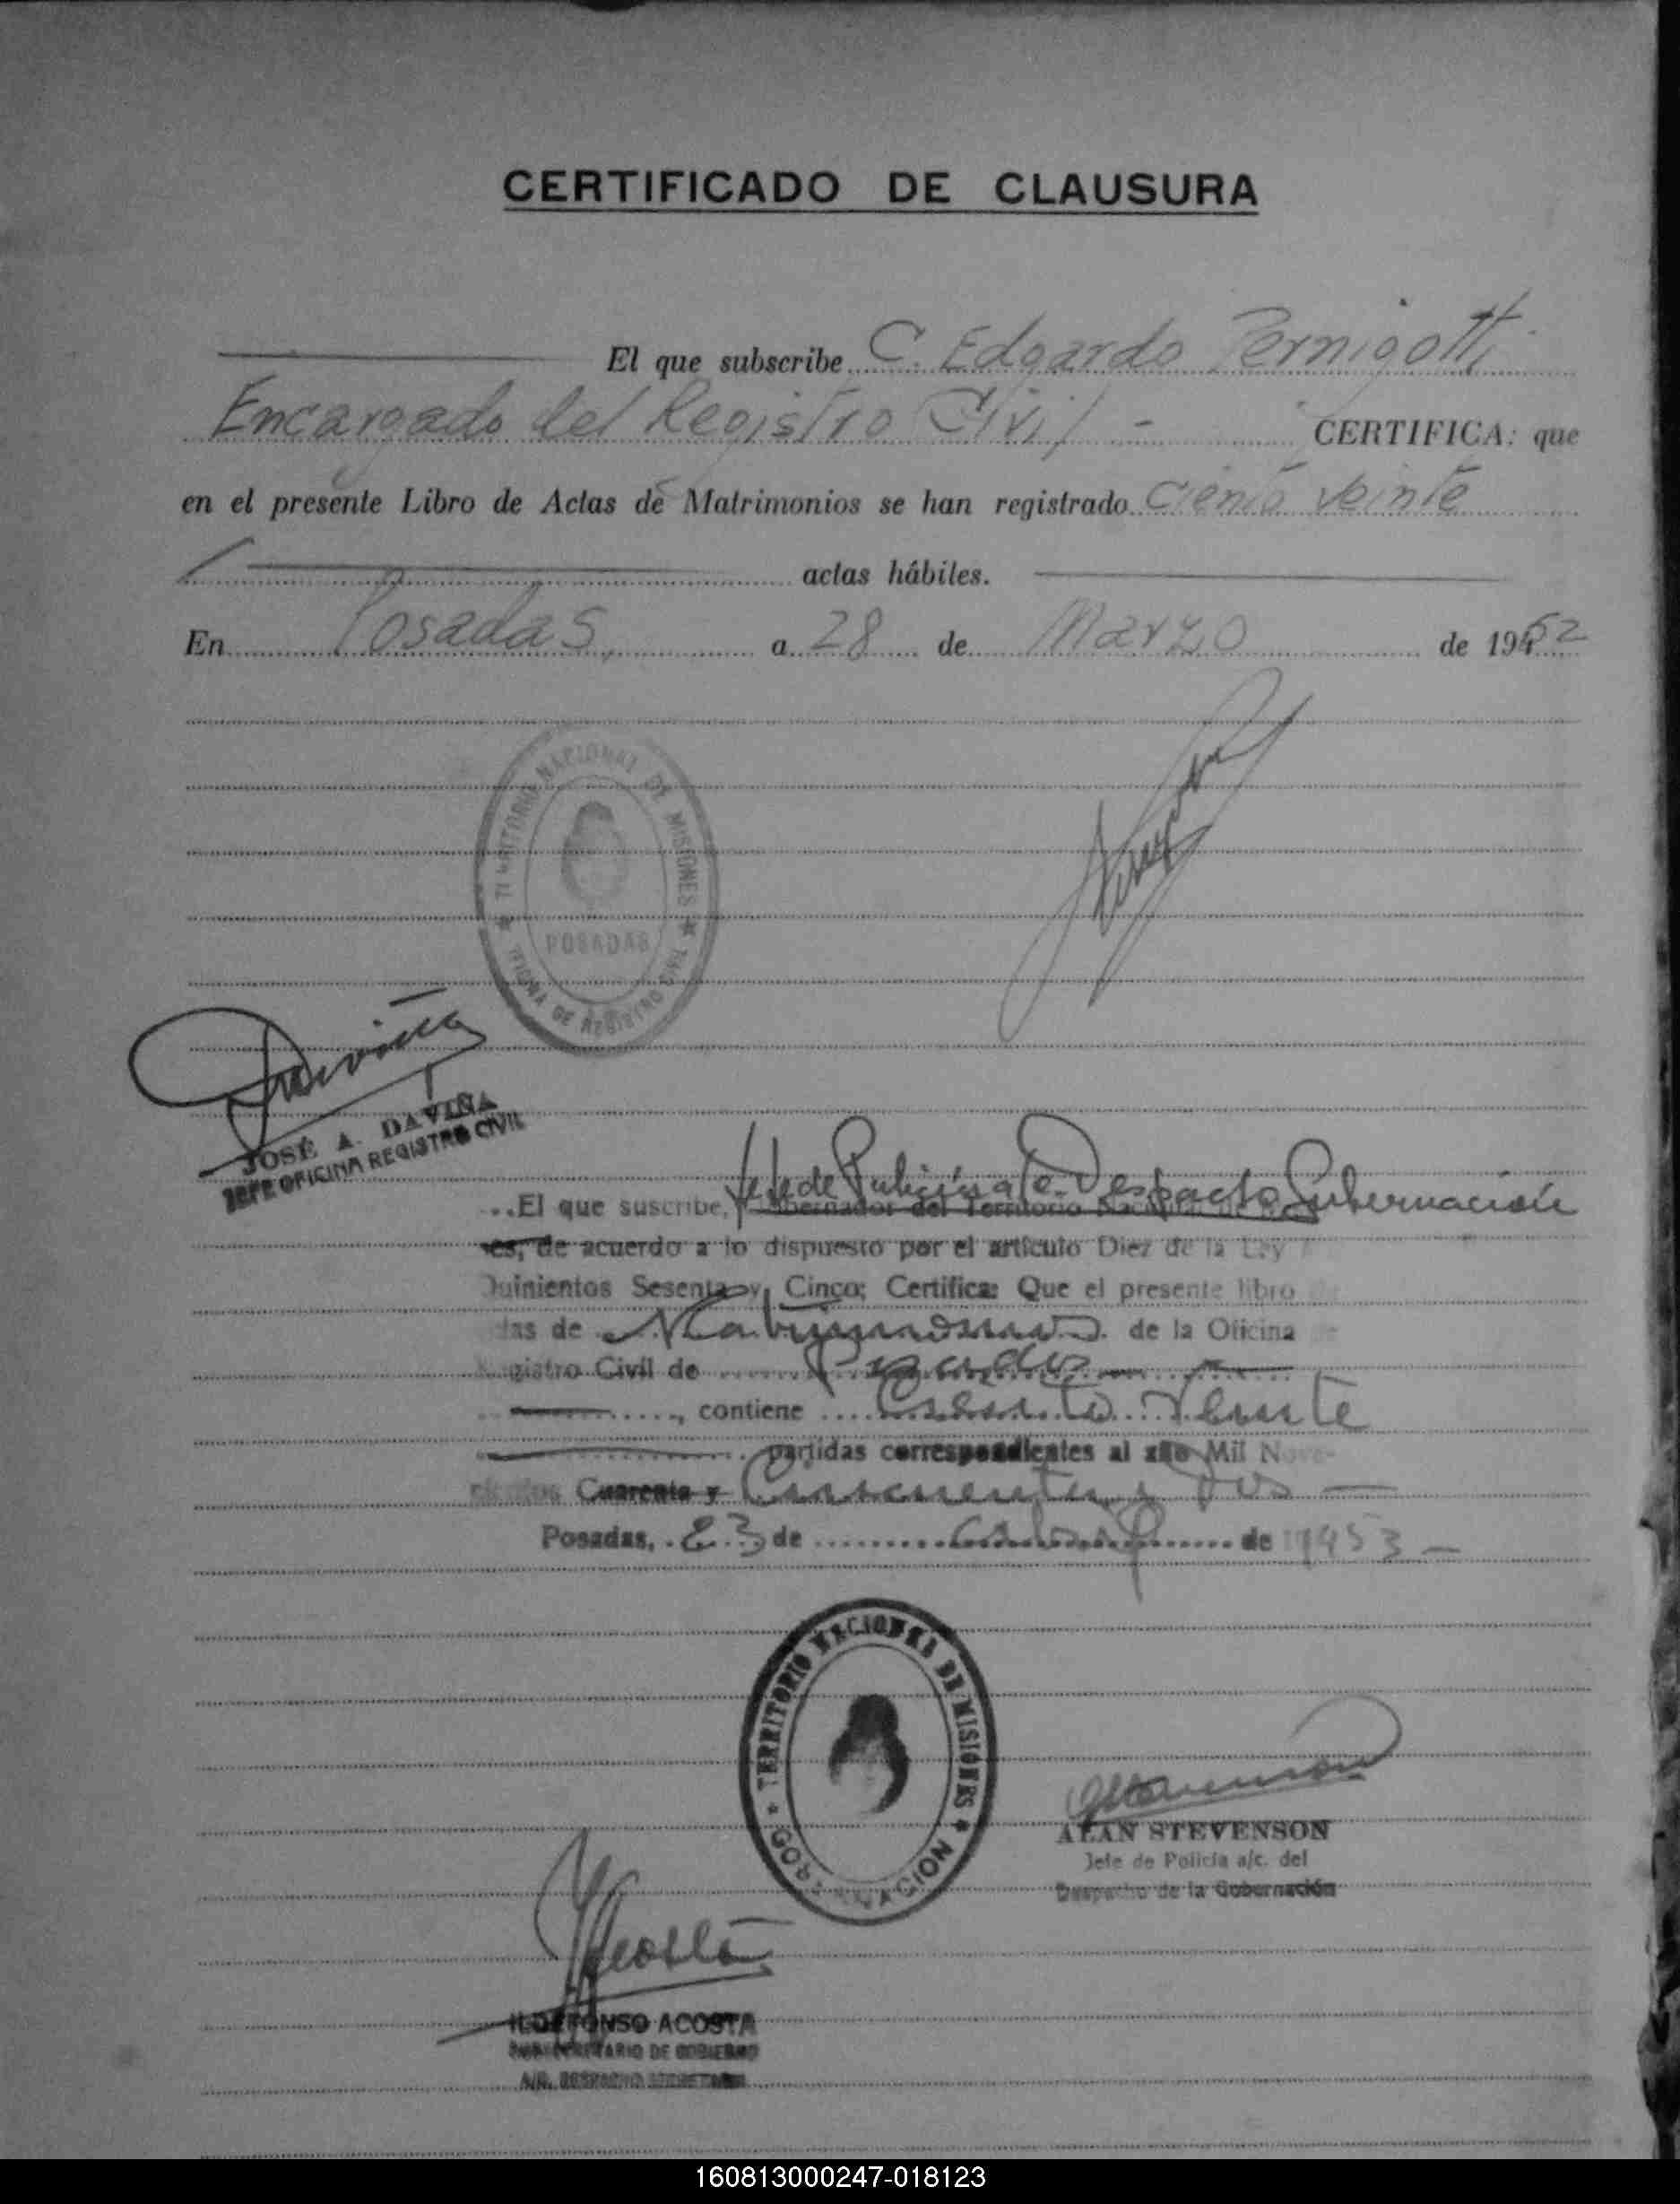 CERTIFICADO DE CLAUSURA
El que subscribe C. Edgardo Pernigotti
Encargado del Registro Civil - CERTIFICA: que
en el presente Libro de Actas de Matrimonios se han registrado Ciento Veinte
actas hábiles.
En Posadas, a 28 de Marzo de 1952
TERRITORIO NACIONAL DE MISIONES
POSADAS
OFICINA DE REGISTRO CIVIL
Daviña
JOSÉ A. DAVIÑA
JEFE OFICINA REGISTRO CIVIL
El que suscribe, Jefe de Policía a/c. Despacho Gobernación
Gobernador del Territorio Nacional de
es, de acuerdo a lo dispuesto por el artículo Diez de la Ley
Quinientos Sesenta y Cinco; Certifica: Que el presente libro de
tas de Matrimonios de la Oficina de
Registro Civil de Posadas
, contiene Ciento Veinte
partidas correspondientes al año Mil Nove-
cientos Cuarenta y Cincuenta y Dos —
Posadas, 23 de de 1953 —
TERRITORIO NACIONAL DE MISIONES
GOBERNACION
Stevenson
ALAN STEVENSON
Jefe de Policía a/c. del
Despacho de la Gobernación
Acosta
ILDEFONSO ACOSTA
SUB-SECRETARIO DE GOBIERNO
A/C. DESPACHO SECRETARIA
160813000247-018123